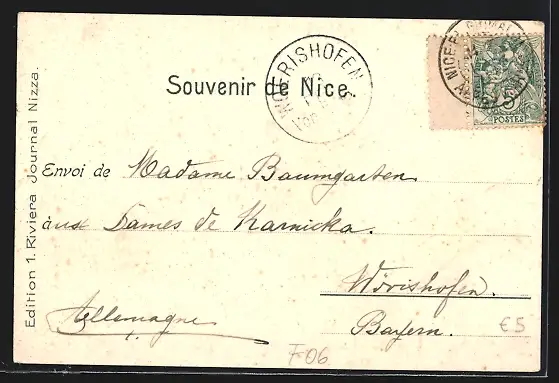 Souvenir de Nice.
WOERISHOFEN
5
POSTES
Envoi de Madame Baumgarten
aux Dames de Karnicka.
Wörishofen.
Bayern.
Allemagne
F06
€5
Edition 1. Riviera Journal Nizza.